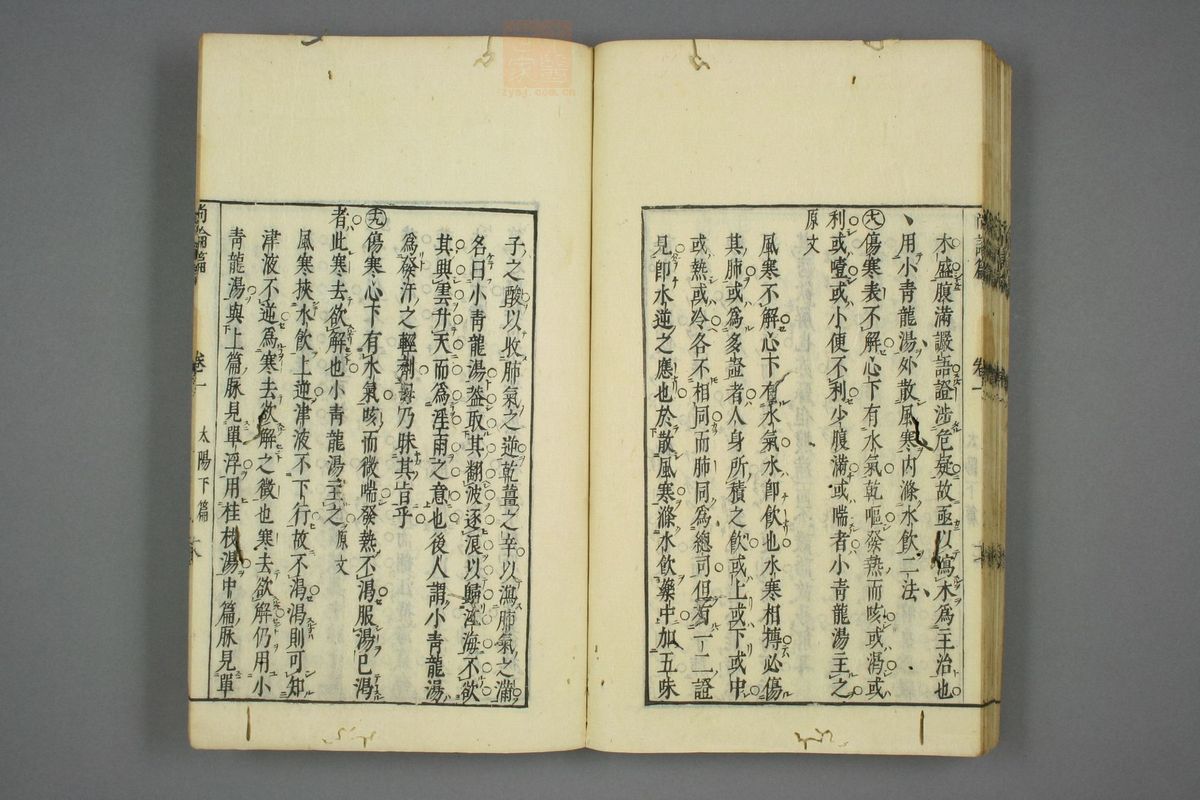 木盛腹滿譫語證涉危疑故亟以瀉木爲主治也
用小青龍湯外散風寒內滌水飲二法
傷寒表不解心下有水氣乾嘔發熱而咳或渴或
利或噎或小便不利少腹滿或喘者小青龍湯主之
原文
風寒不解心下有水氣水即飲也水寒相搏必傷
其肺或爲多證者人身所積之飲或上或下或中
或熱或冷各不相同而肺同爲總司但有一二證
見即水逆之應也於散風寒滌水飲藥中加五味
子之酸以收肺氣之逆乾薑之辛以瀉肺氣之滿
名曰小青龍湯蓋取其翻波逐浪以歸江海不欲
其興雲升天而爲淫雨之意也後人謂小青龍湯
爲發汗之輕劑毋乃昧其旨乎
十九 傷寒心下有水氣咳而微喘發熱不渴服湯已渴
者此寒去欲解也小青龍湯主之 原文
風寒挾水飲上逆津液不下行故不渴渴則可知
津液不逆爲寒去欲解之徵也寒去欲解仍用小
青龍湯與上篇脉見單浮用桂枝湯中篇脉見單
尚論篇 卷一 太陽下篇
zysj.com.cn